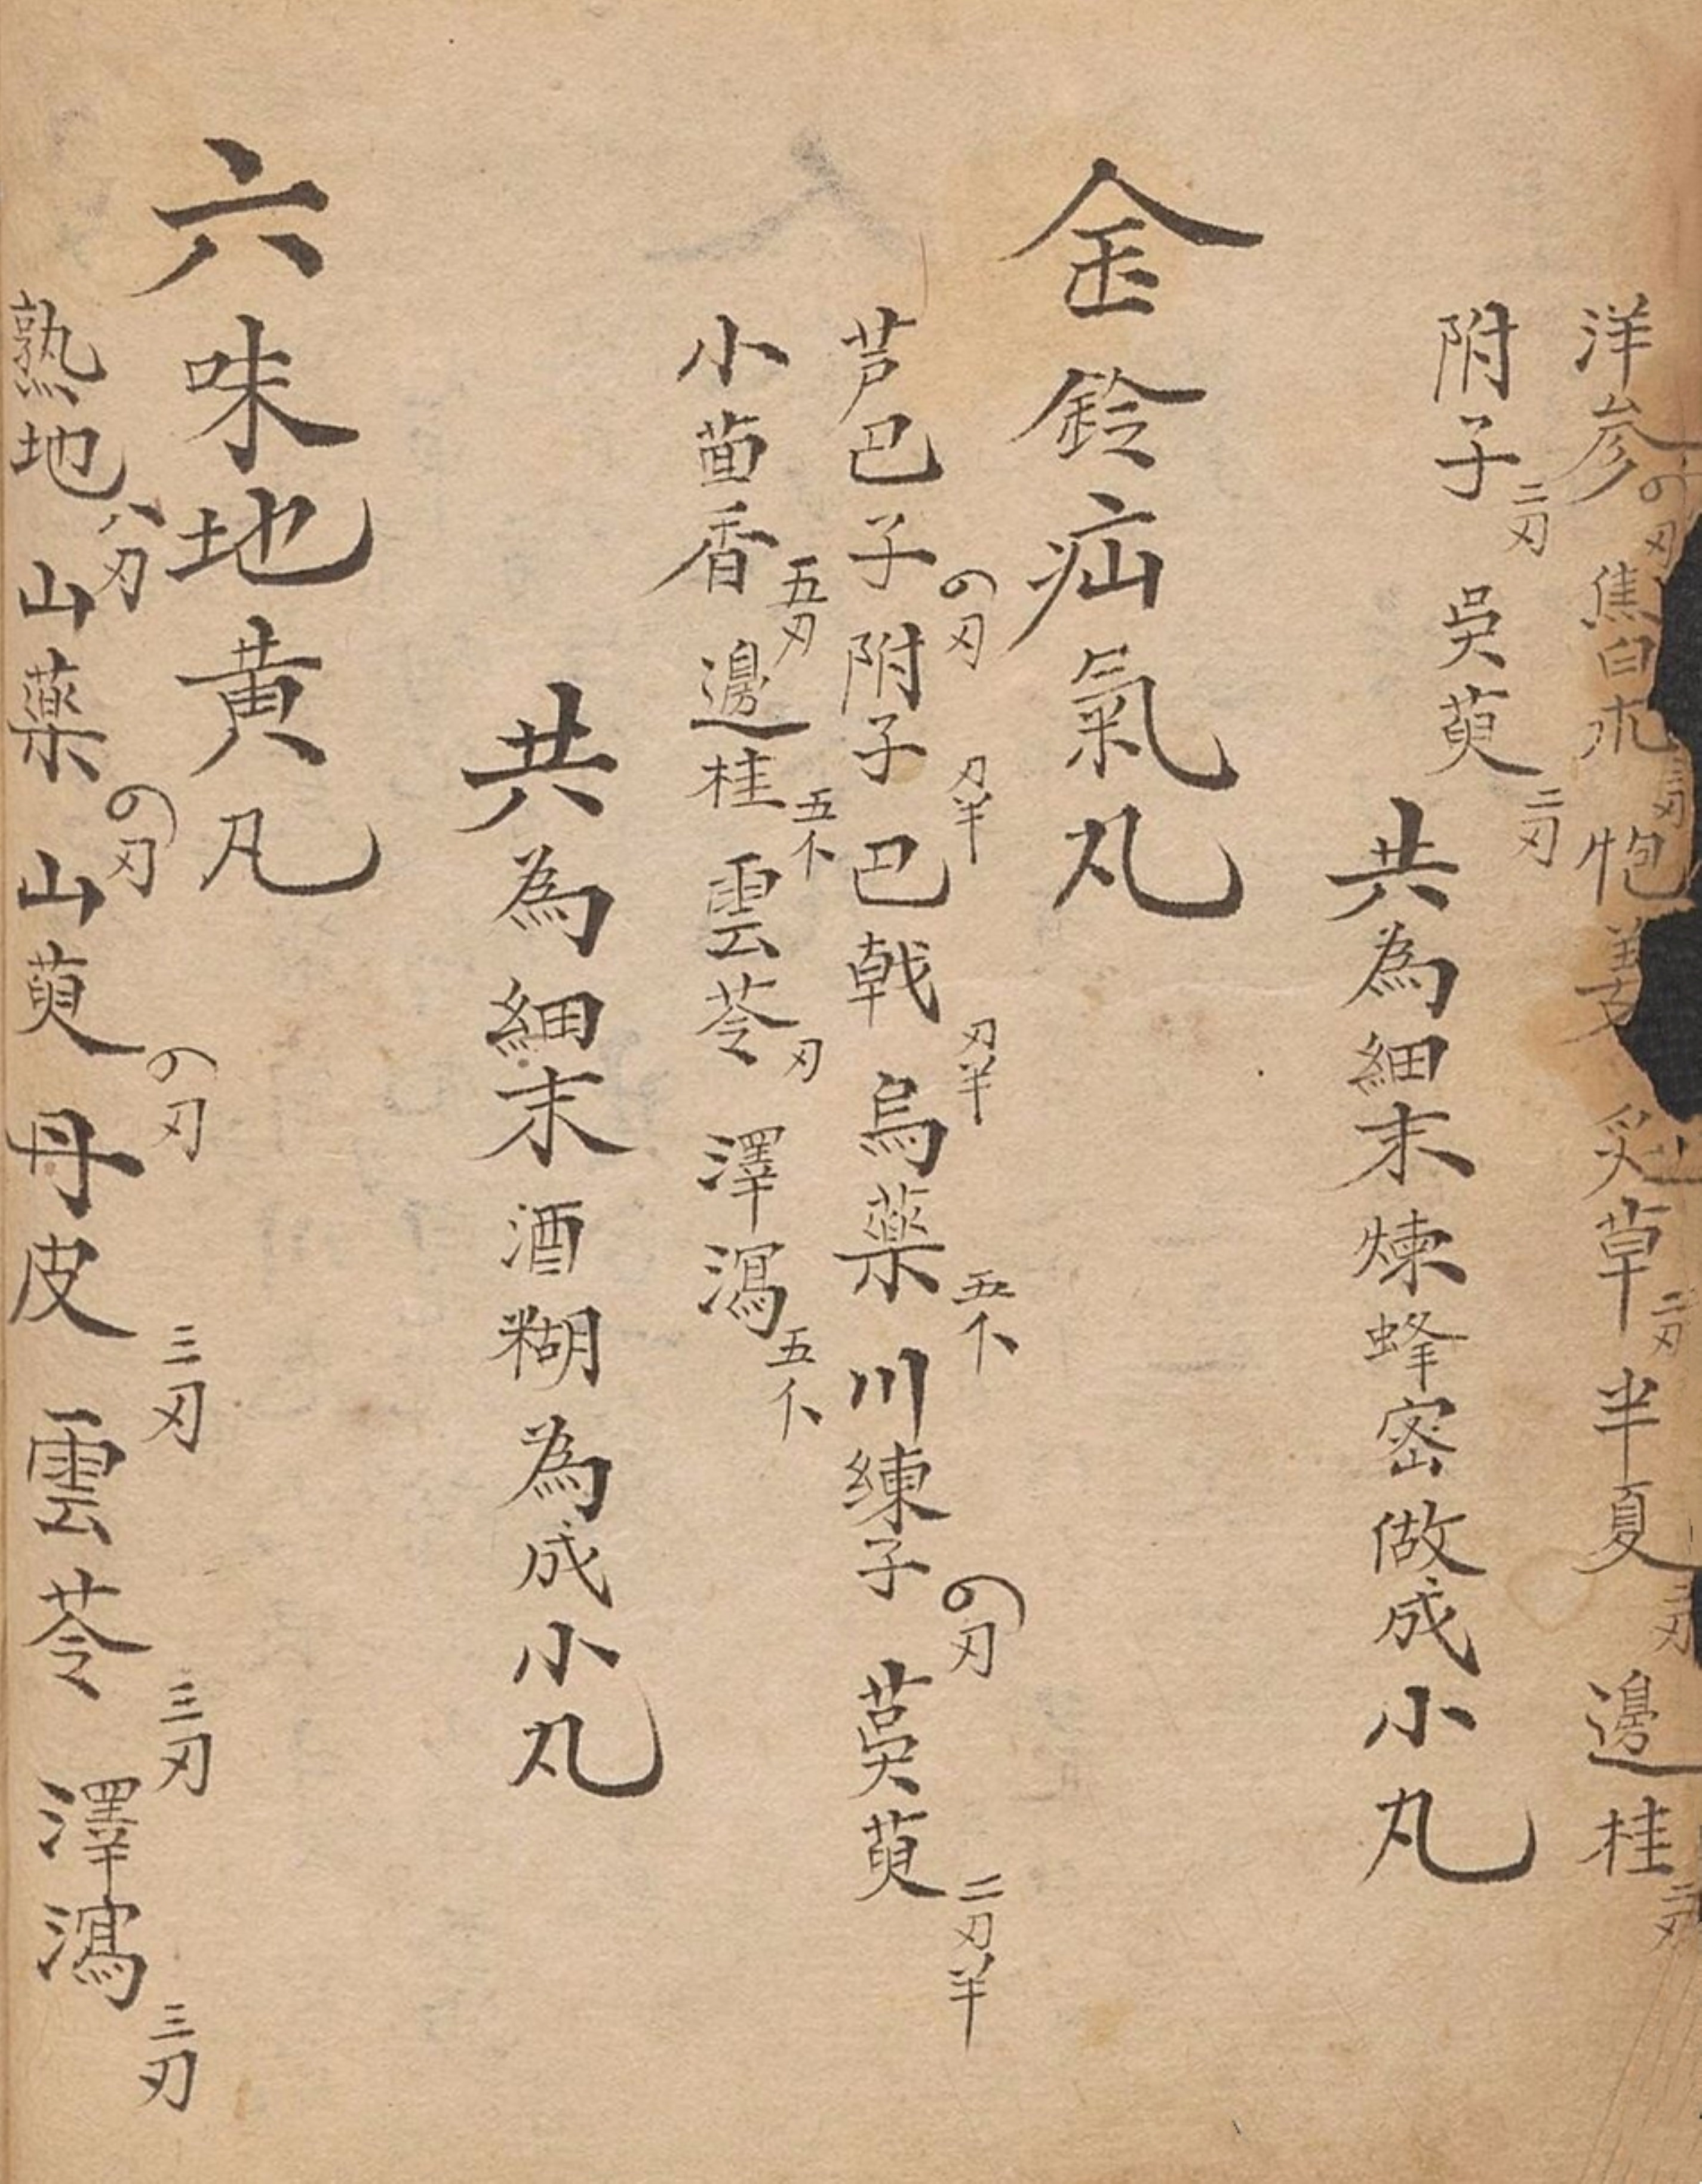 洋参の刃焦白朮三刃炮姜炙草二刃半夏二刃邊桂二刃
附子二刃吳萸二刃
共為細末煉蜂密做成小丸
金鈴疝氣丸
芦巴子の刃附子刃半巴戟刃半烏藥五个川練子の刃茣萸二刃半
小茴香五刃邊桂五个雲苓刃澤瀉五个
共為細末酒糊為成小丸
六味地黄丸
熟地八刃山藥の刃山萸の刃丹皮三刃雲苓三刃澤瀉三刃